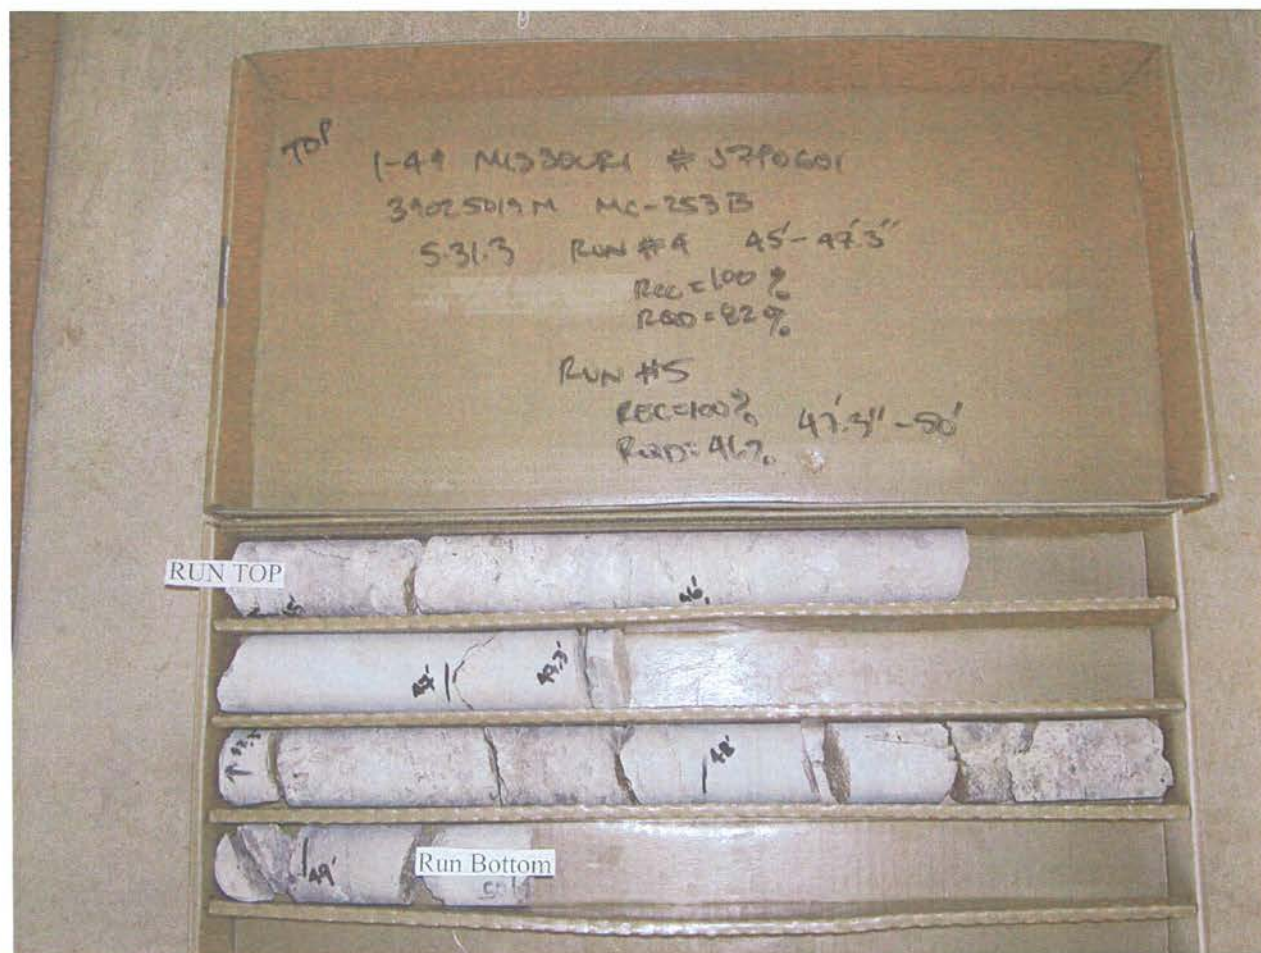 TOP
I-49 MISSOURI # J7P0601
39025019M MC-253B
5.31.3 RUN #4 45'-47.3"
REC=100%
RQD=82%
RUN #5
REC=100% 47.3"-50'
RQD=46%
RUN TOP
46'
47' 47.3'
47.3
48'
49' Run Bottom
50'